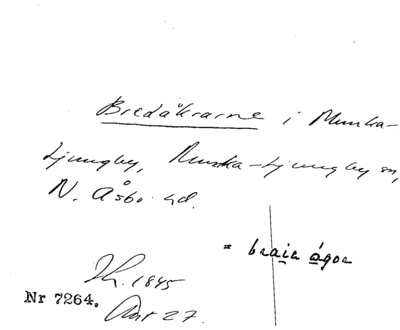 Bredåkrarne i Munka-
Ljungby, Munka-Ljungby sn,
N. Åsbo hd.
= braia ágor
1845
Nr 7264.
27.